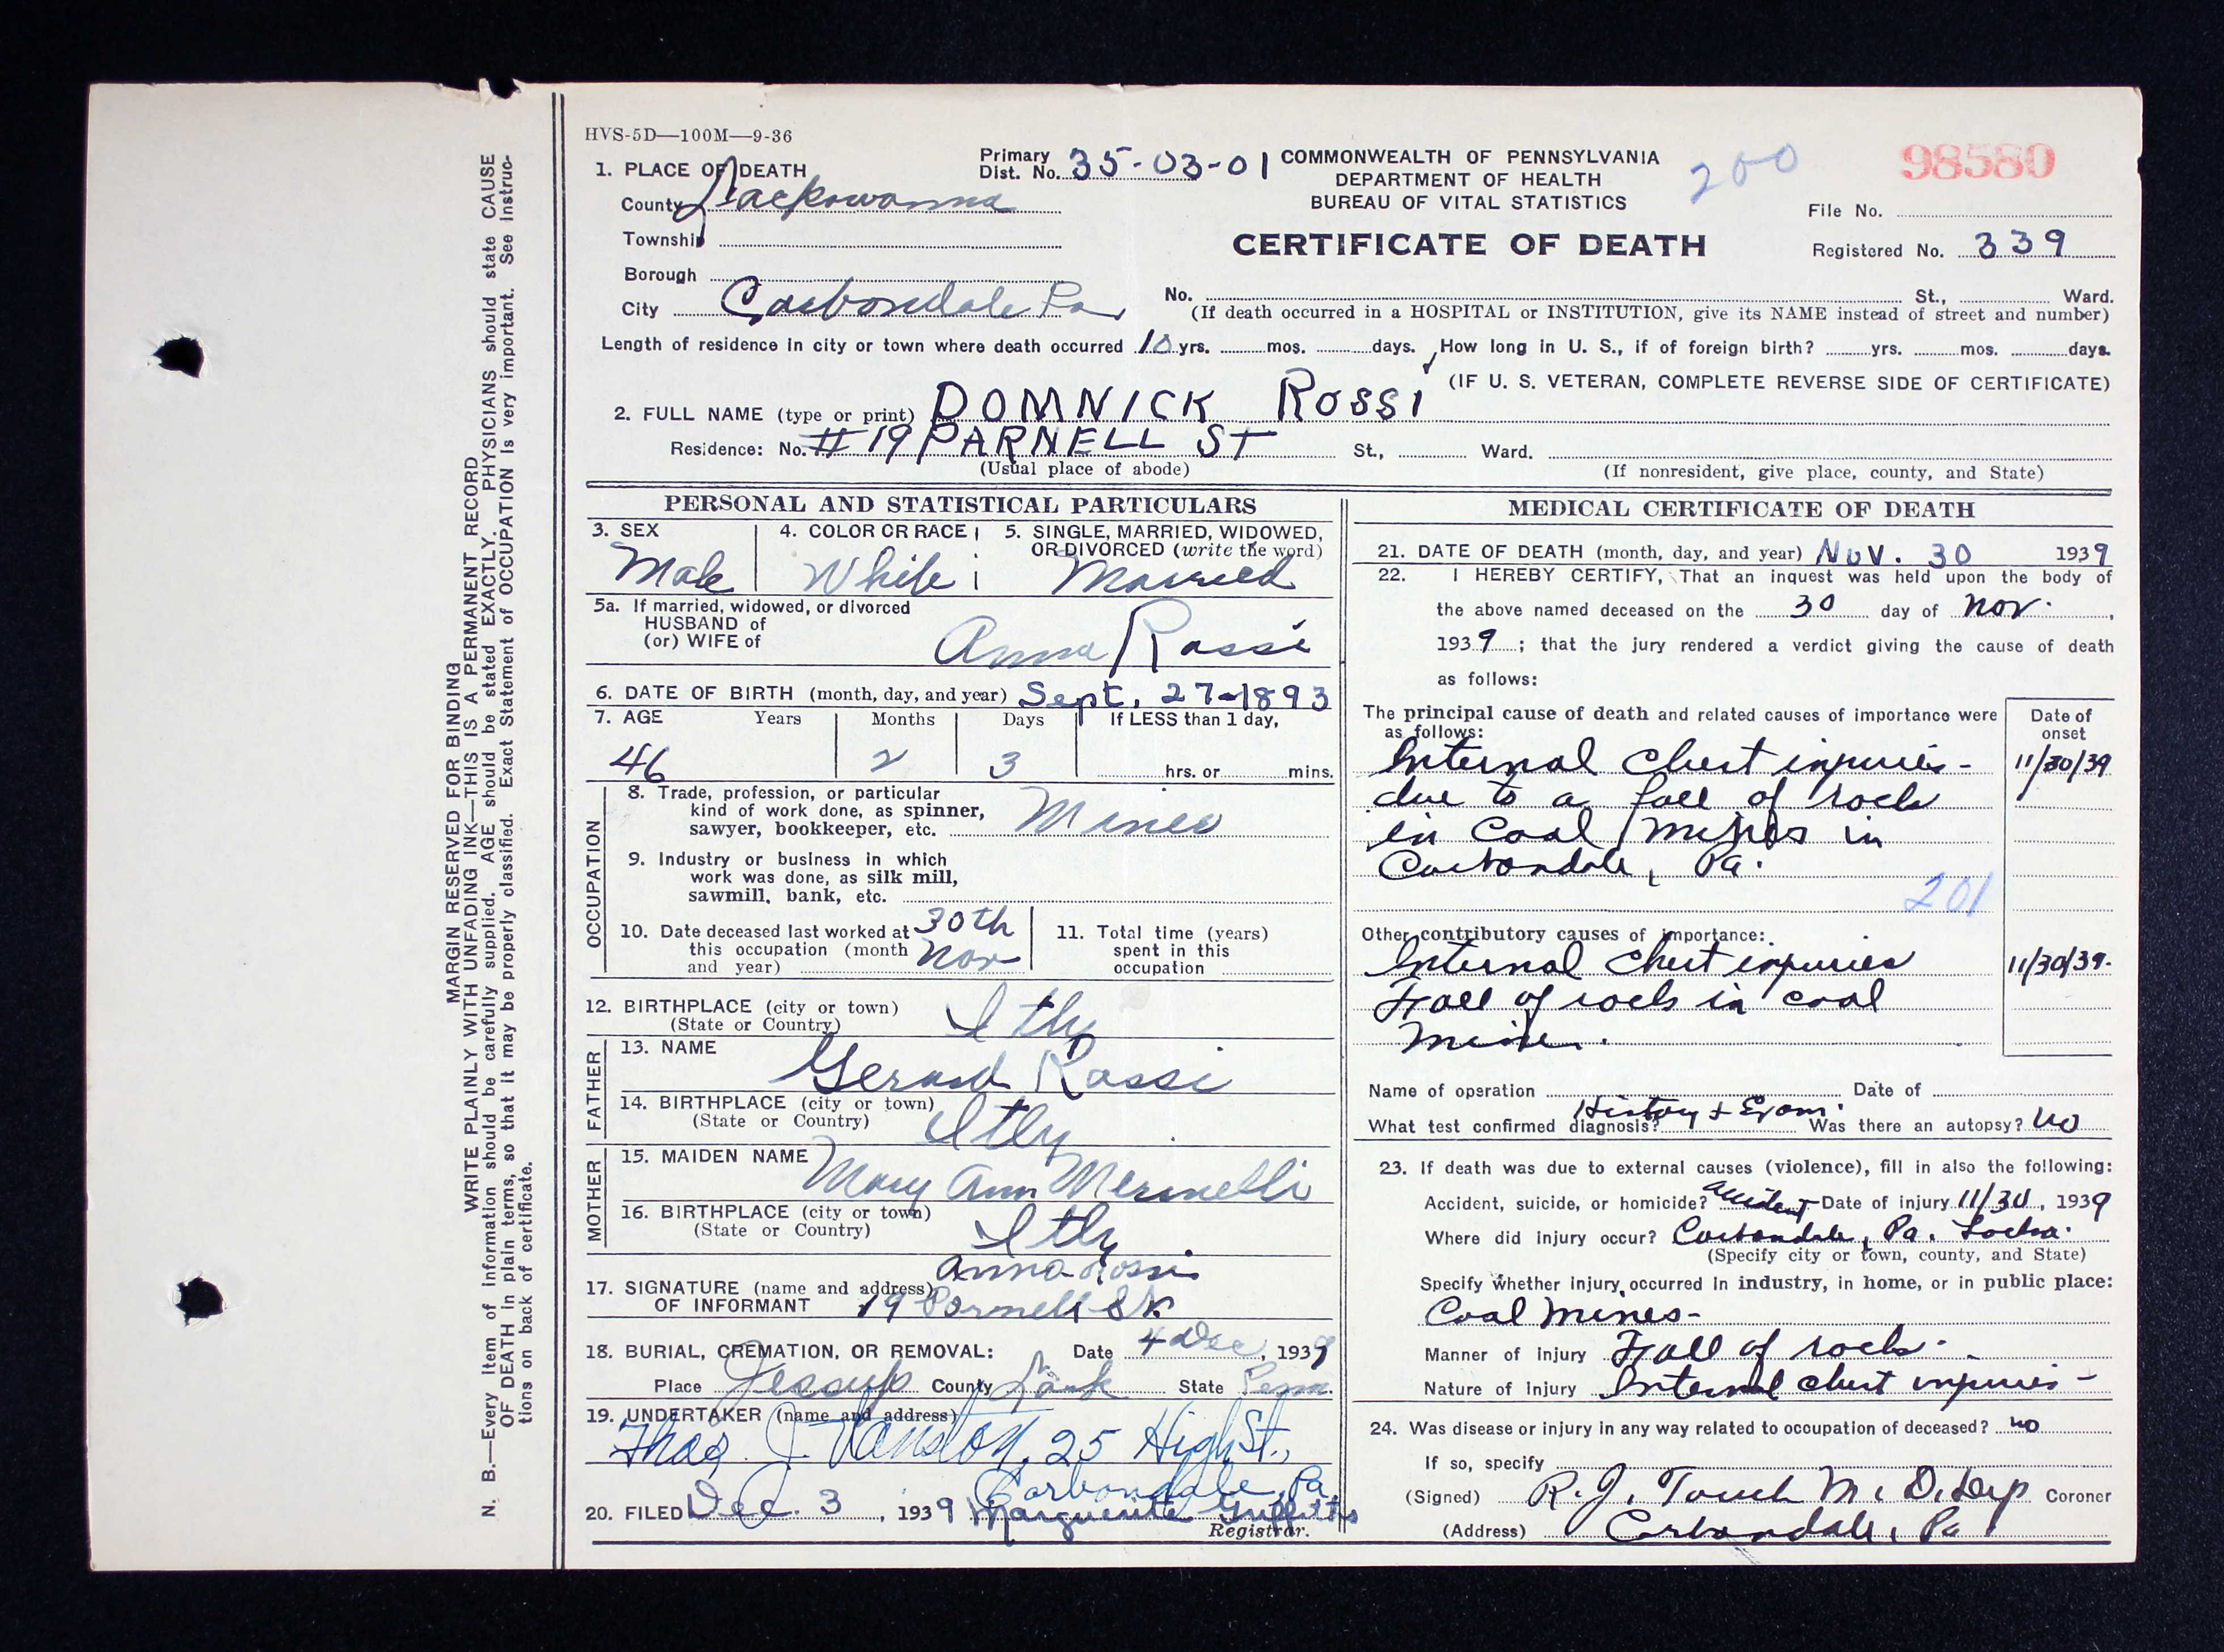 HVS-5D—100M—9-36
1. PLACE OF DEATH
County Lackawanna
Township
Borough
City Carbondale Pa
Primary
Dist. No. 35-03-01
COMMONWEALTH OF PENNSYLVANIA
DEPARTMENT OF HEALTH
BUREAU OF VITAL STATISTICS
CERTIFICATE OF DEATH
200
98580
File No.
Registered No. 339
No. St., Ward.
(If death occurred in a HOSPITAL or INSTITUTION, give its NAME instead of street and number)
Length of residence in city or town where death occurred 10 yrs. mos. days. How long in U. S., if of foreign birth? yrs. mos. days.
(IF U. S. VETERAN, COMPLETE REVERSE SIDE OF CERTIFICATE)
2. FULL NAME (type or print) DOMNICK ROSSI
Residence: No. #19 PARNELL ST St., Ward.
(Usual place of abode)
(If nonresident, give place, county, and State)
PERSONAL AND STATISTICAL PARTICULARS
3. SEX
Male
4. COLOR OR RACE
White
5. SINGLE, MARRIED, WIDOWED,
OR DIVORCED (write the word)
Married
5a. If married, widowed, or divorced
HUSBAND of
(or) WIFE of
Anna Rossi
6. DATE OF BIRTH (month, day, and year) Sept. 27-1893
7. AGE Years Months Days If LESS than 1 day,
46 2 3 hrs. or mins.
OCCUPATION
8. Trade, profession, or particular
kind of work done, as spinner,
sawyer, bookkeeper, etc. Miner
9. Industry or business in which
work was done, as silk mill,
sawmill, bank, etc.
10. Date deceased last worked at
this occupation (month
and year)
30th
Nov
11. Total time (years)
spent in this
occupation
12. BIRTHPLACE (city or town)
(State or Country)
Itly
FATHER
13. NAME
Gerard Rossi
14. BIRTHPLACE (city or town)
(State or Country)
Itly
MOTHER
15. MAIDEN NAME
Mary Ann Merinelli
16. BIRTHPLACE (city or town)
(State or Country)
Itly
17. SIGNATURE (name and address)
OF INFORMANT
Anna Rossi
19 Parnell St
18. BURIAL, CREMATION, OR REMOVAL: Date 4 Dec, 1939
Place Jessup County Lack State Penn.
19. UNDERTAKER (name and address)
Thos. J. Vanston, 25 High St.,
Carbondale, Pa
20. FILED Dec. 3, 1939 Marguerite Griffiths
Registrar.
MEDICAL CERTIFICATE OF DEATH
21. DATE OF DEATH (month, day, and year) Nov. 30 1939
22. I HEREBY CERTIFY, That an inquest was held upon the body of
the above named deceased on the 30 day of Nov.,
1939; that the jury rendered a verdict giving the cause of death
as follows:
The principal cause of death and related causes of importance were
as follows:
Date of
onset
Internal Chest injuries - 11/30/39
due to a fall of rock
in Coal Mines in
Carbondale, Pa.
201
Other contributory causes of importance:
Internal Chest injuries 11/30/39.
Fall of rock in coal
Mines.
Name of operation Date of
What test confirmed diagnosis? History & Exam. Was there an autopsy? No
23. If death was due to external causes (violence), fill in also the following:
Accident, suicide, or homicide? accident Date of injury 11/30, 1939
Where did injury occur? Carbondale, Pa. Lacka.
(Specify city or town, county, and State)
Specify whether injury occurred in industry, in home, or in public place:
Coal Mines-
Manner of injury Fall of rock -
Nature of injury Internal chest injuries -
24. Was disease or injury in any way related to occupation of deceased? no
If so, specify
(Signed) R. J. M. D. Dep Coroner
(Address) Carbondale, Pa
MARGIN RESERVED FOR BINDING
WRITE PLAINLY WITH UNFADING INK—THIS IS A PERMANENT RECORD
N. B.—Every item of information should be carefully supplied. AGE should be stated EXACTLY. PHYSICIANS should state CAUSE
OF DEATH in plain terms, so that it may be properly classified. Exact Statement of OCCUPATION is very important. See instruc-
tions on back of certificate.